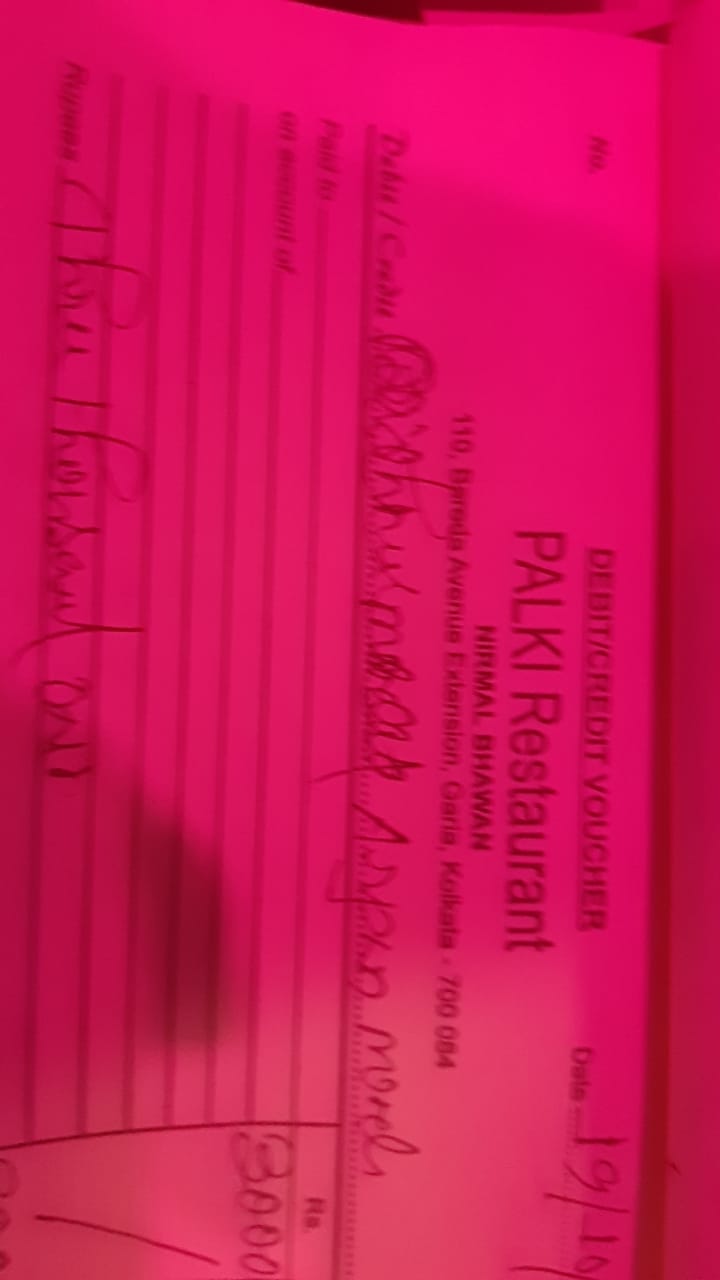 DEBIT/CREDIT VOUCHER
No. Date 19/10/
PALKI Restaurant
NIRMAL BHAWAN
110, Baroda Avenue Extension, Garia, Kolkata - 700 084
Debit / Credit
Paid to Rs.
on account of 3000
Rupees Three Thousand only